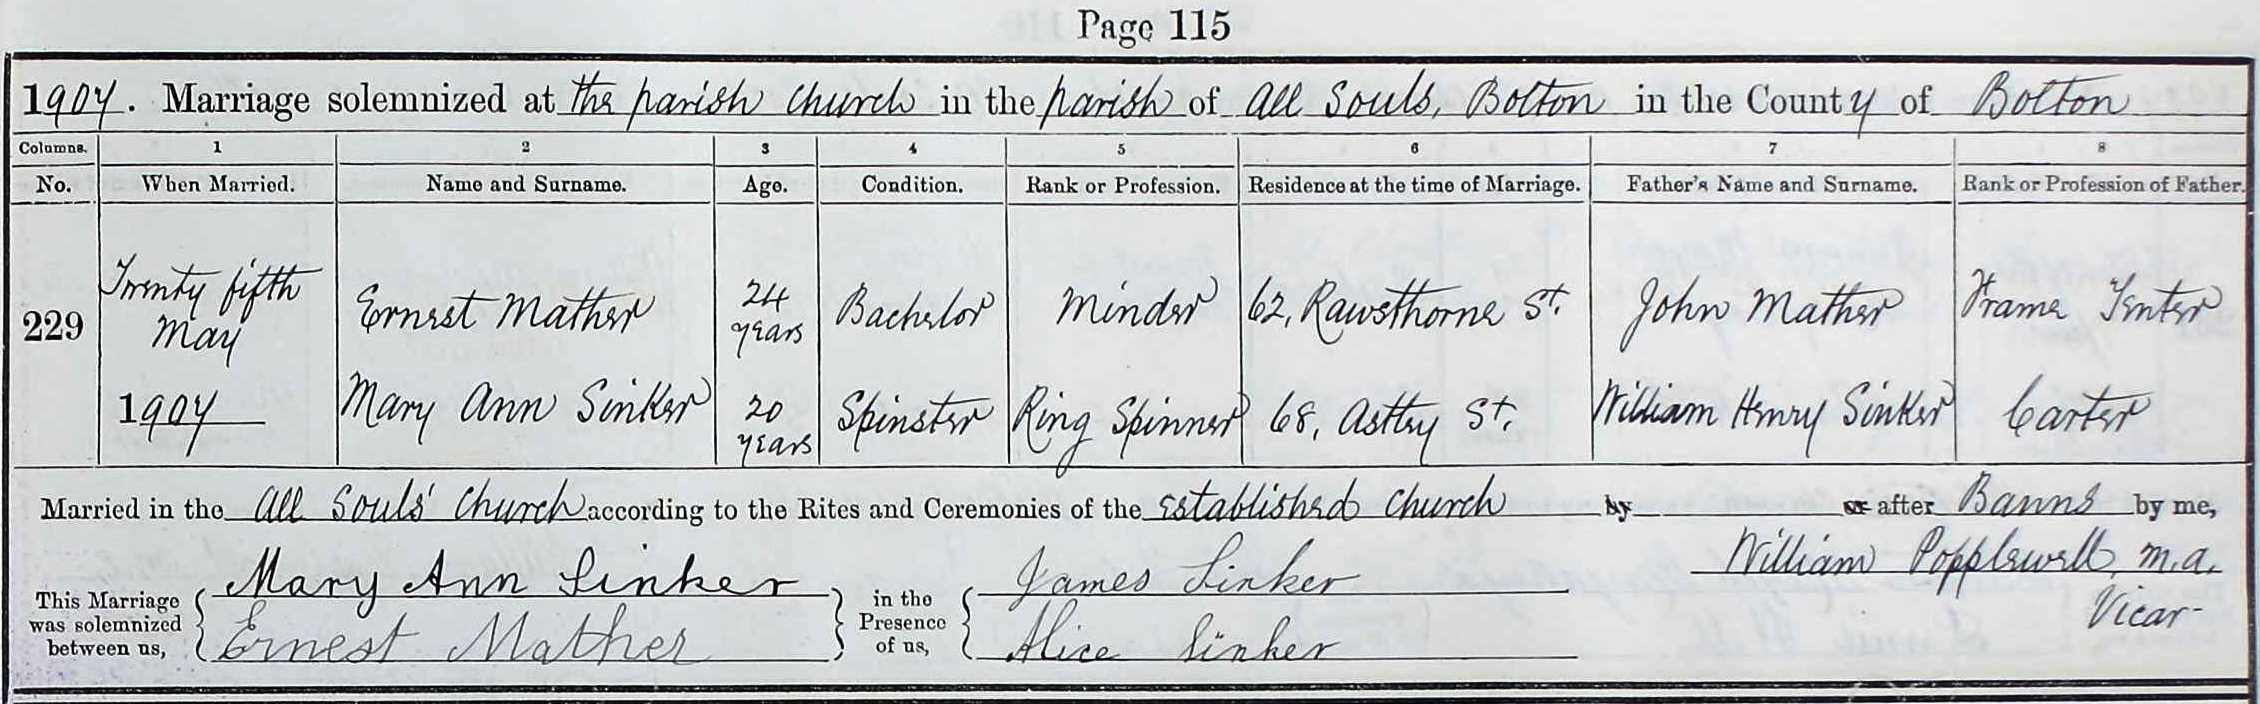 Page 115
1904. Marriage solemnized at the parish church in the parish of All Souls, Bolton in the County of Bolton
Columns. 1 2 3 4 5 6 7 8
No. When Married. Name and Surname. Age. Condition. Rank or Profession. Residence at the time of Marriage. Father's Name and Surname. Rank or Profession of Father.
229 Twenty fifth May Ernest Mather 24 years Bachelor Minder 62, Rawsthorne St. John Mather Frame Tenter
1904 Mary Ann Sinker 20 years Spinster Ring Spinner 68, Astley St. William Henry Sinker Carter
Married in the All Souls' Church according to the Rites and Ceremonies of the Established Church by or after Banns by me,
William Popplewell, M.A.
Vicar
This Marriage was solemnized between us, Mary Ann Sinker in the Presence of us, James Sinker
Ernest Mather Alice Sinker